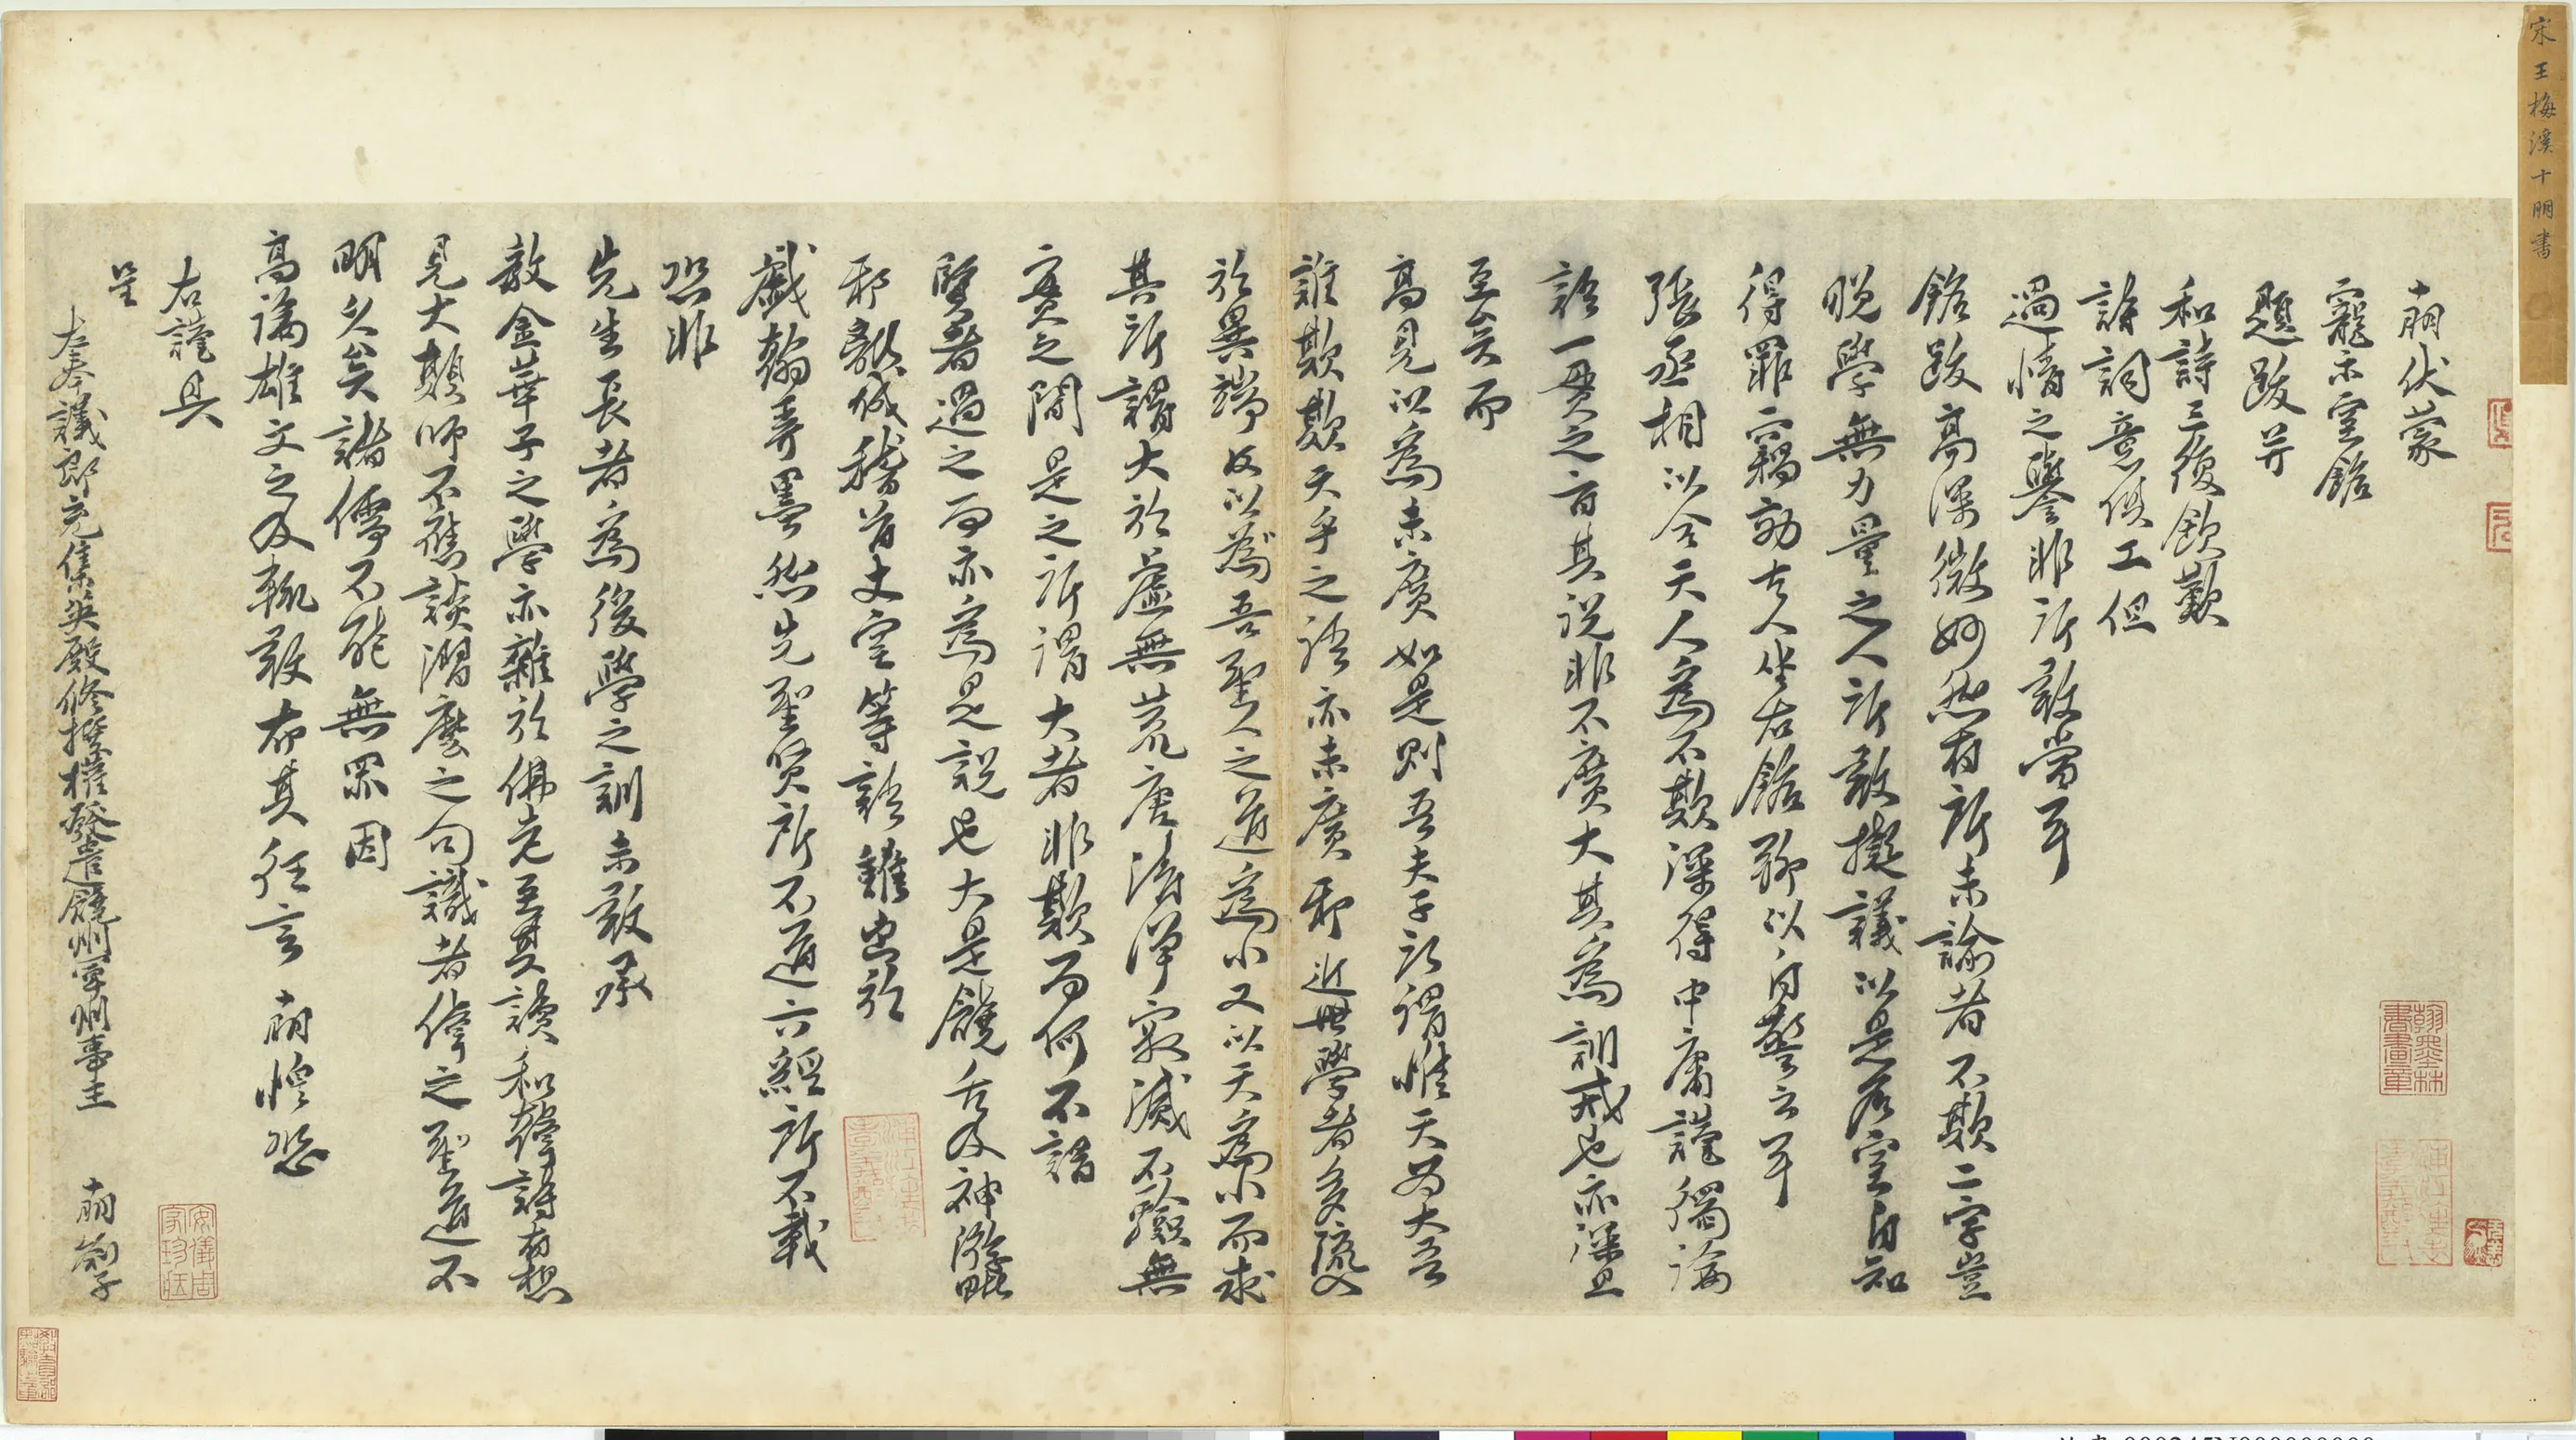 宋王梅溪十朋書
十朋伏蒙
寵示室銘
題跋并
和詩三復欽歎
詩詞意俱工但
過情之譽非所敢當耳
銘跋高深微妙然有所未諭者不欺二字豈
晚學無力量之人所敢擬議以是名室自知
得罪而竊效古人坐右銘聊以自警云耳
張丞相以合天人為不欺深得中庸謹獨論
語一貫之旨其說非不廣大其為訓戒也亦深且
至矣而
高見以為未廣如是則吾夫子所謂惟天為大吾
誰欺欺天乎之語亦未廣耶近世學者多流入
於異端反以為吾聖人之道為小又以天為小而求
其所謂大於虛無荒唐清淨寂滅不驗無
實之間是之所謂大者非欺而何不謂
賢者過之而亦為是說也大是饒舌及神游
耶輸佛稽首丈室等語雖出於
戲翰弄墨然先聖賢所不道六經所不載
恐非
先生長者為後學之訓未敢承
教金華子之學亦雜於佛老至其讀和篇詩有想
見大顛師不應談澗麼之句識者倅之聖道不
明久矣諸儒不能無罪因
高論雄文之及輒敢布其狂言 十朋惶恐
右謹具
呈
左奉議郎充集英殿修撰權發遣饒州軍州事王 十朋劄子
翰墨林書畫章
安儀周家珍藏